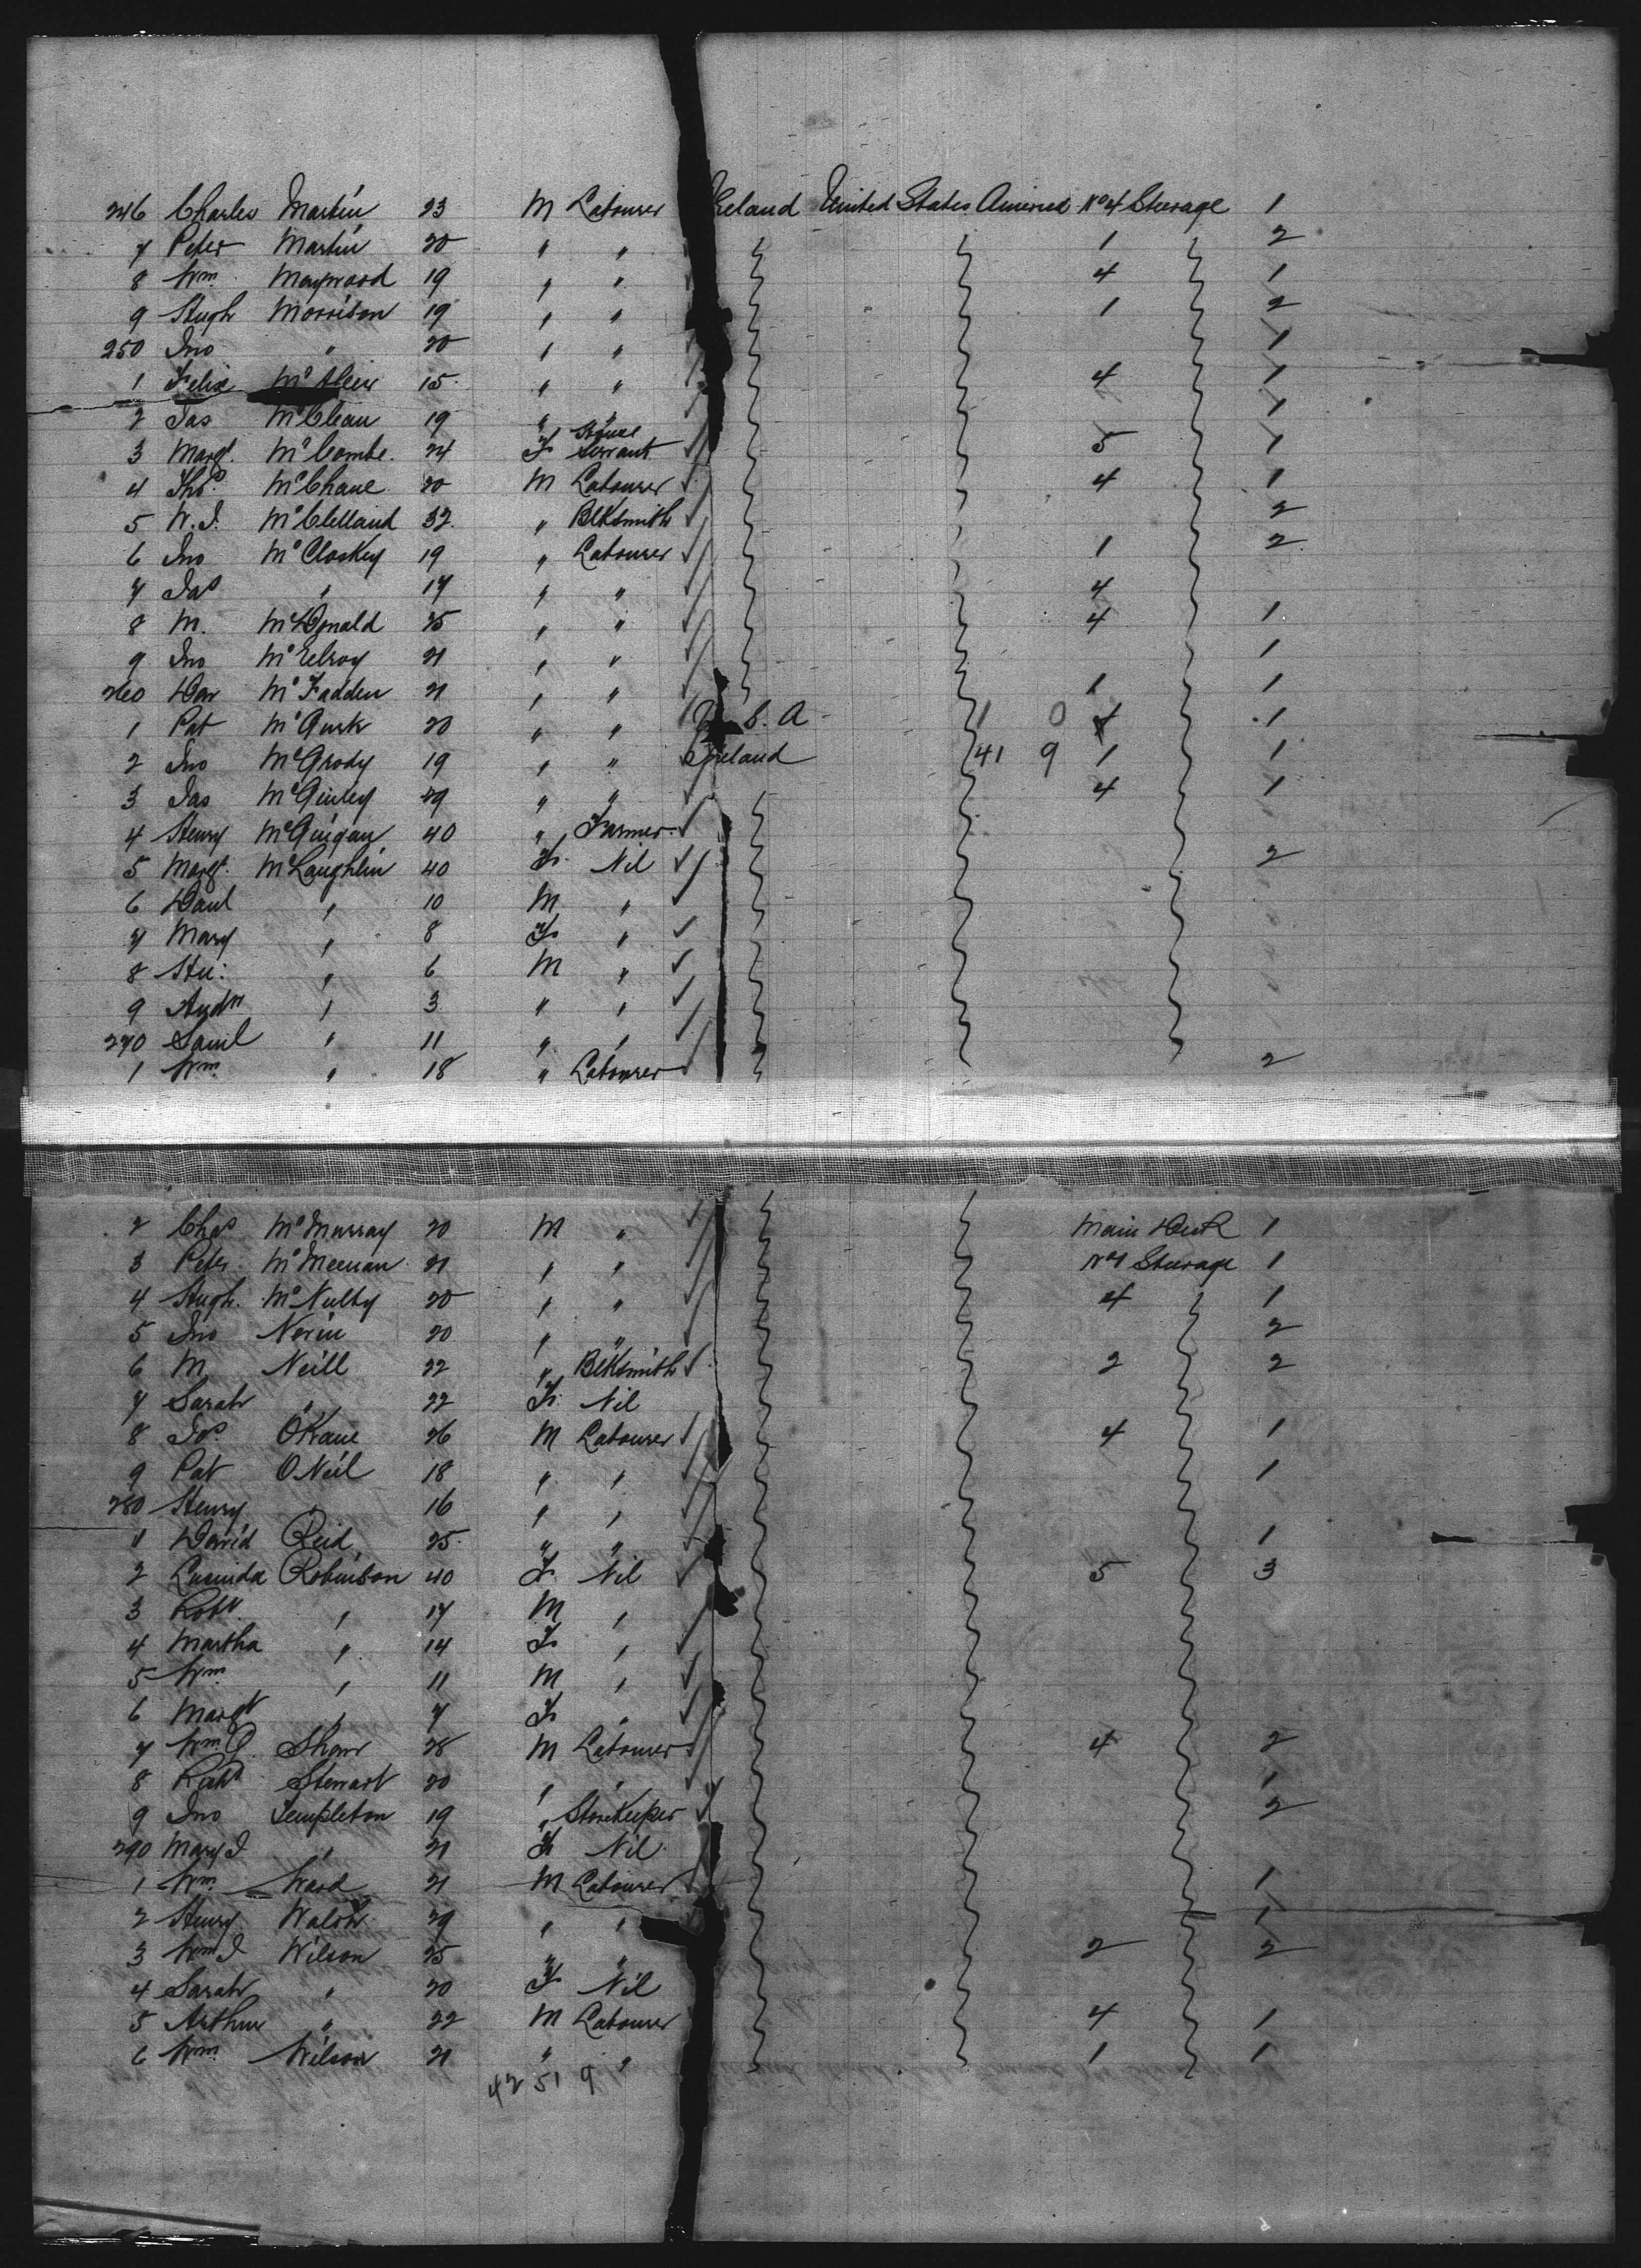 246 Charles Martin 23 M Labourer Ireland United States America No 4 Steerage 1
7 Peter Martin 20 " " 1 2
8 Wm Maywood 19 " " 4 1
9 Hugh Morrison 19 " " 1 2
250 Jno " 20 " " 1
1 Felix McAleer 15 " " 4 1
2 Jas McClean 19 " " 1
3 Margt McCombe 24 F House Servant 5 1
4 Thos McShane 20 M Labourer 4 1
5 W.J. McClelland 32 " Blksmith 2
6 Jno McCloskey 19 " Labourer 1 2
7 Jas " 17 " " 4
8 M. McDonald 25 " " 4 1
9 Jno McElroy 21 " " 1
260 Dan McFadden 21 " " 1 1
1 Pat McGurk 20 " " U.S.A 1 0 4 1
2 Jno McGrody 19 " " Ireland 41 9 1 1
3 Jas McGinley 29 " " 4 1
4 Henry McGuigan 40 " Farmer
5 Margt McLaughlin 40 F Nil 2
6 Danl " 10 M "
7 Mary " 8 F "
8 Hu: " 6 M "
9 Andw " 3 " "
270 Saml " 11 " "
1 Wm " 18 " Labourer 2
2 Chas McMurray 20 M " Main Deck 1
3 Peter McMeenan 21 " " No 1 Steerage 1
4 Hugh McNulty 20 " " 4 1
5 Jno Nevin 20 " " 2
6 M. Neill 22 " Blksmith 2 2
7 Sarah " 22 F Nil
8 Jos O'Kane 26 M Labourer 4 1
9 Pat O'Neil 18 " " 1
280 Henry " 16 " "
1 David Reid 25 " " 1
2 Lucinda Robinson 40 F Nil 5 3
3 Robt " 17 M "
4 Martha " 14 F "
5 Wm " 11 M "
6 Margt " 7 F "
7 Wm G. Shaw 28 M Labourer 4 2
8 Richd Stewart 20 " " 1
9 Jno Templeton 19 " Storekeeper 2
290 Mary J " 21 F Nil
1 Wm Ward 21 M Labourer 1
2 Henry Walsh 29 " " 1
3 Wm J Wilson 25 " " 2 2
4 Sarah " 20 F Nil
5 Arthur " 22 M Labourer 4 1
6 Wm Wilson 21 " " 1 1
42 51 9